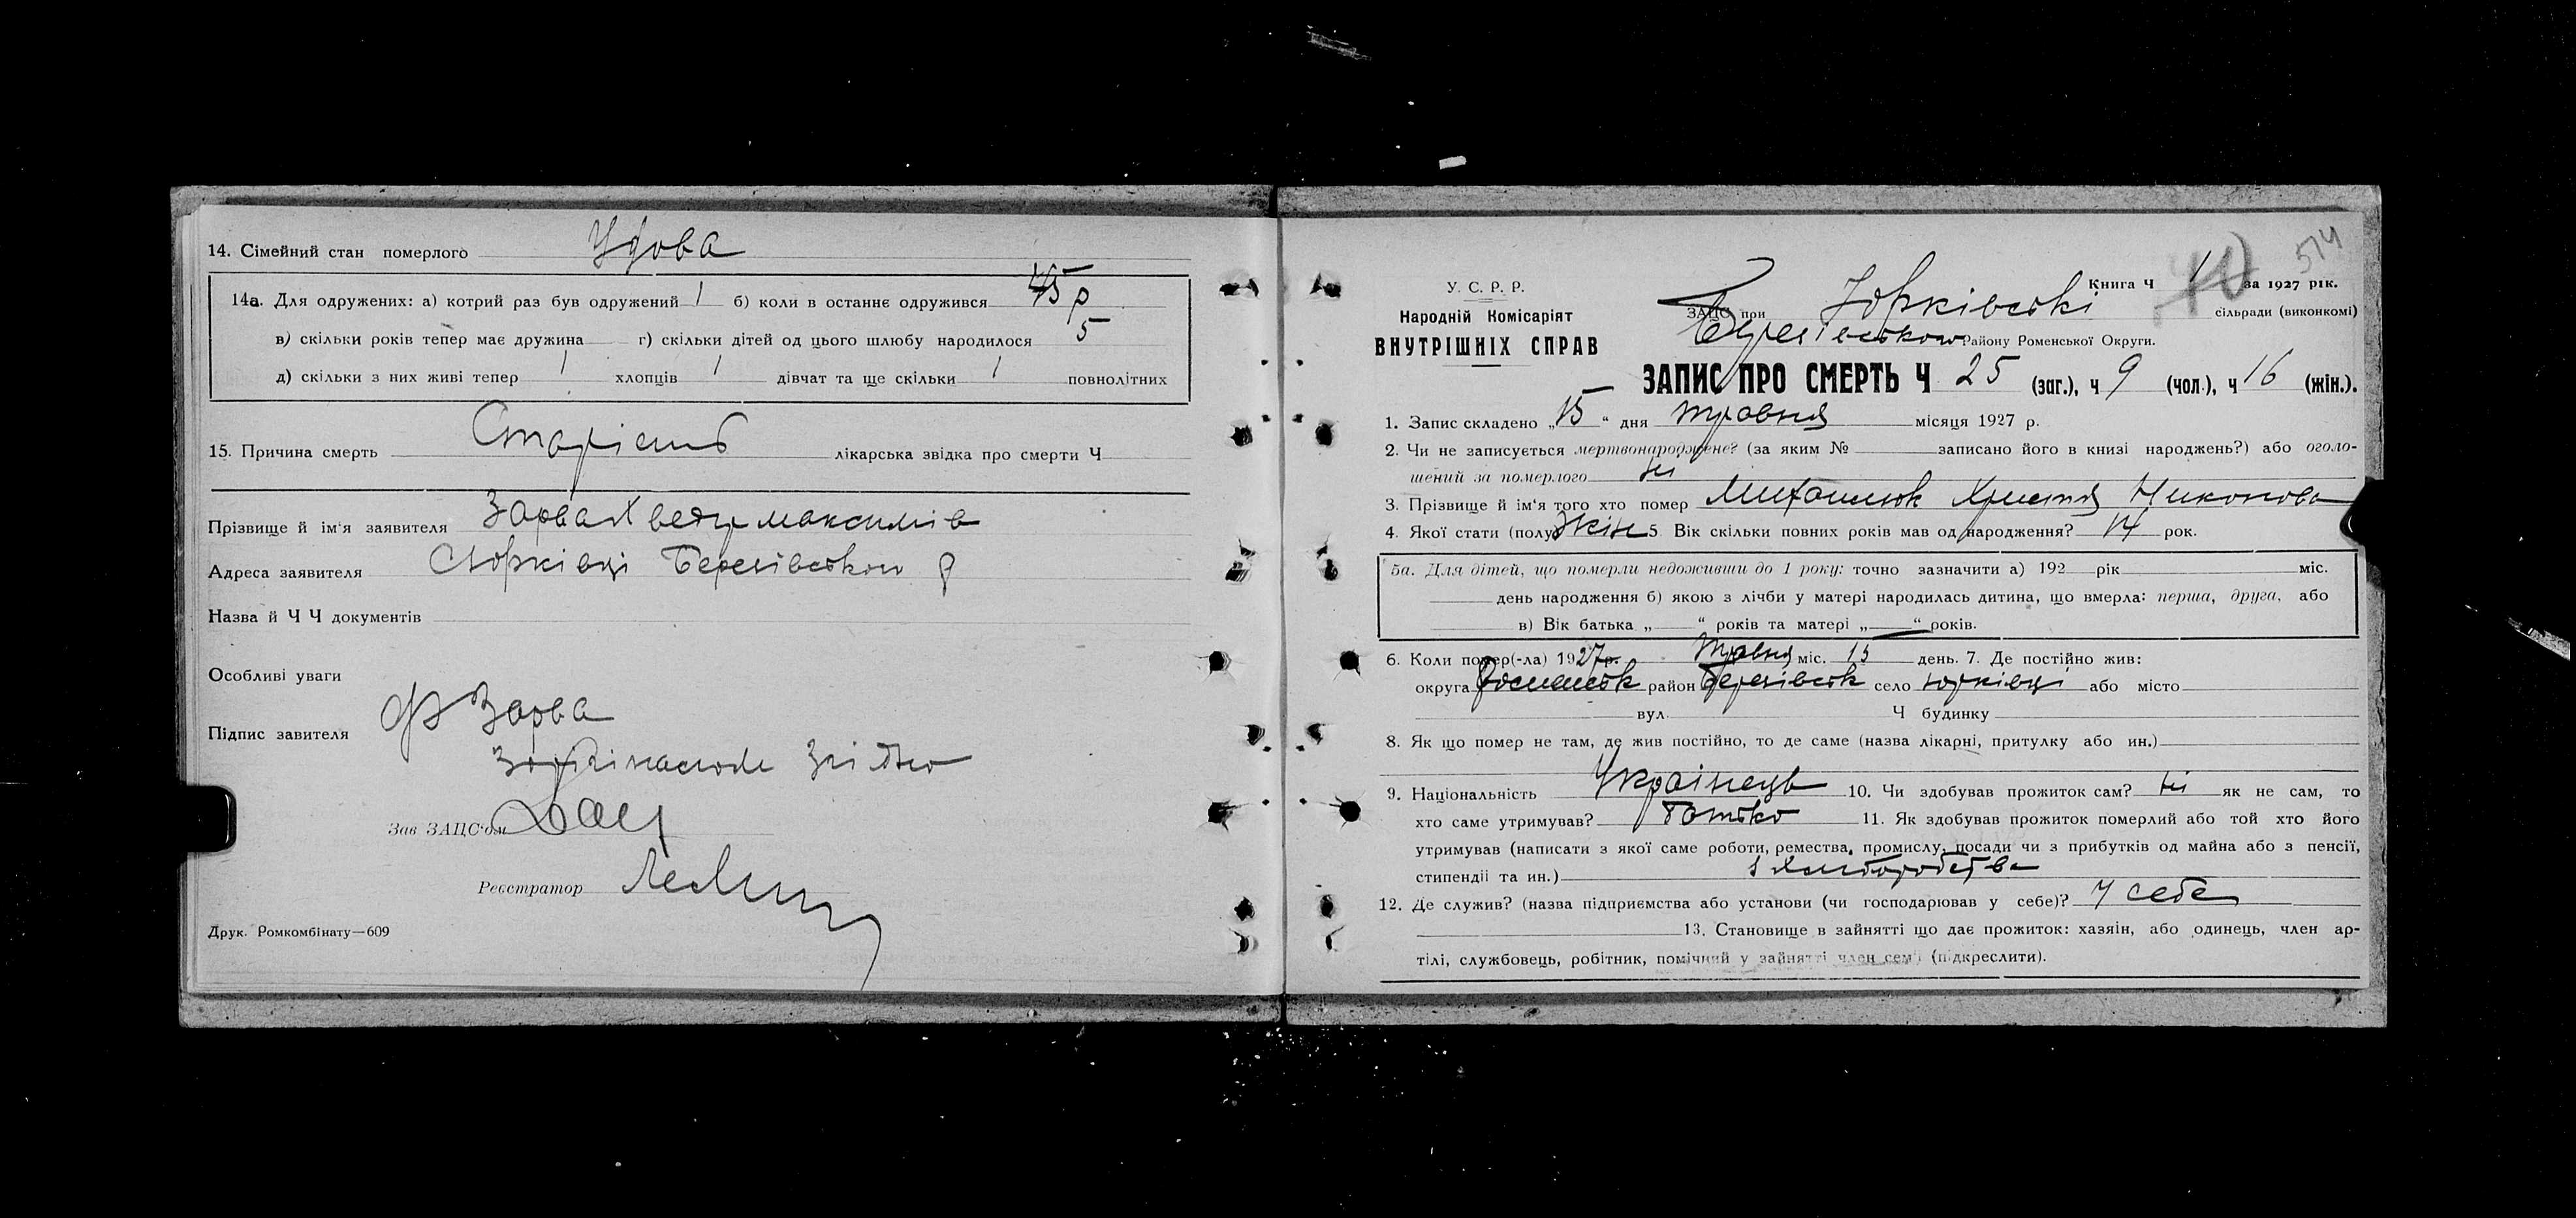 14. Сімейний стан померлого Удова
14а. Для одружених: а) котрий раз був одружений 1 б) коли в останнє одружився 45 р
в) скільки років тепер має дружина г) скільки дітей од цього шлюбу народилося 5
д) скільки з них живі тепер 1 хлопців 1 дівчат та ще скільки 1 повнолітних
15. Причина смерть Старість лікарська звідка про смерти Ч
Прізвище й ім'я заявителя Зарва Хведир максимів
Адреса заявителя с Юрківці Березівского р
Назва й Ч Ч документів
Особливі уваги
Підпис завителя Ф Зарва
Зав ЗАЦС'ом
Реєстратор
Друк. Ромкомбінату—609
514
У. С. Р. Р.
Народній Комісаріят
ВНУТРІШНІХ СПРАВ
Книга Ч 1 за 1927 рік.
40
ЗАЦС при Юрківскі сільради (виконкомі)
Березівского Району Роменської Округи.
ЗАПИС ПРО СМЕРТЬ Ч 25 (заг.), ч 9 (чол.), ч 16 (жін.).
1. Запис складено „15“ дня травня місяця 1927 р.
2. Чи не записується мертвонароджене? (за яким № записано його в книзі народжень?) або оголо-
шений за померлого ні
3. Прізвище й ім'я того хто помер Христя Никонова
4. Якої стати (полу) жін 5. Вік скільки повних років мав од народження? 14 рок.
5а. Для дітей, що померли недоживши до 1 року: точно зазначити а) 192 рік міс.
день народження б) якою з лічби у матері народилась дитина, що вмерла: перша, друга, або
в) Вік батька „ “ років та матері „ “ років.
6. Коли помер(-ла) 1927р. травня міс. 15 день. 7. Де постійно жив:
округа Роменськ район Березівськ село юрківці або місто
вул. Ч будинку
8. Як що помер не там, де жив постійно, то де саме (назва лікарні, притулку або ин.)
9. Національність Українець 10. Чи здобував прожиток сам? ні як не сам, то
хто саме утримував? батько 11. Як здобував прожиток померлий або той хто його
утримував (написати з якої саме роботи, ремества, промислу, посади чи з прибутків од майна або з пенсії,
стипендії та ин.) з хліборобства
12. Де служив? (назва підприємства або установи (чи господарював у себе)? у себе
13. Становище в зайнятті що дає прожиток: хазяін, або одинець, член ар-
тілі, службовець, робітник, помічний у зайнятті член сем'ї (підкреслити).